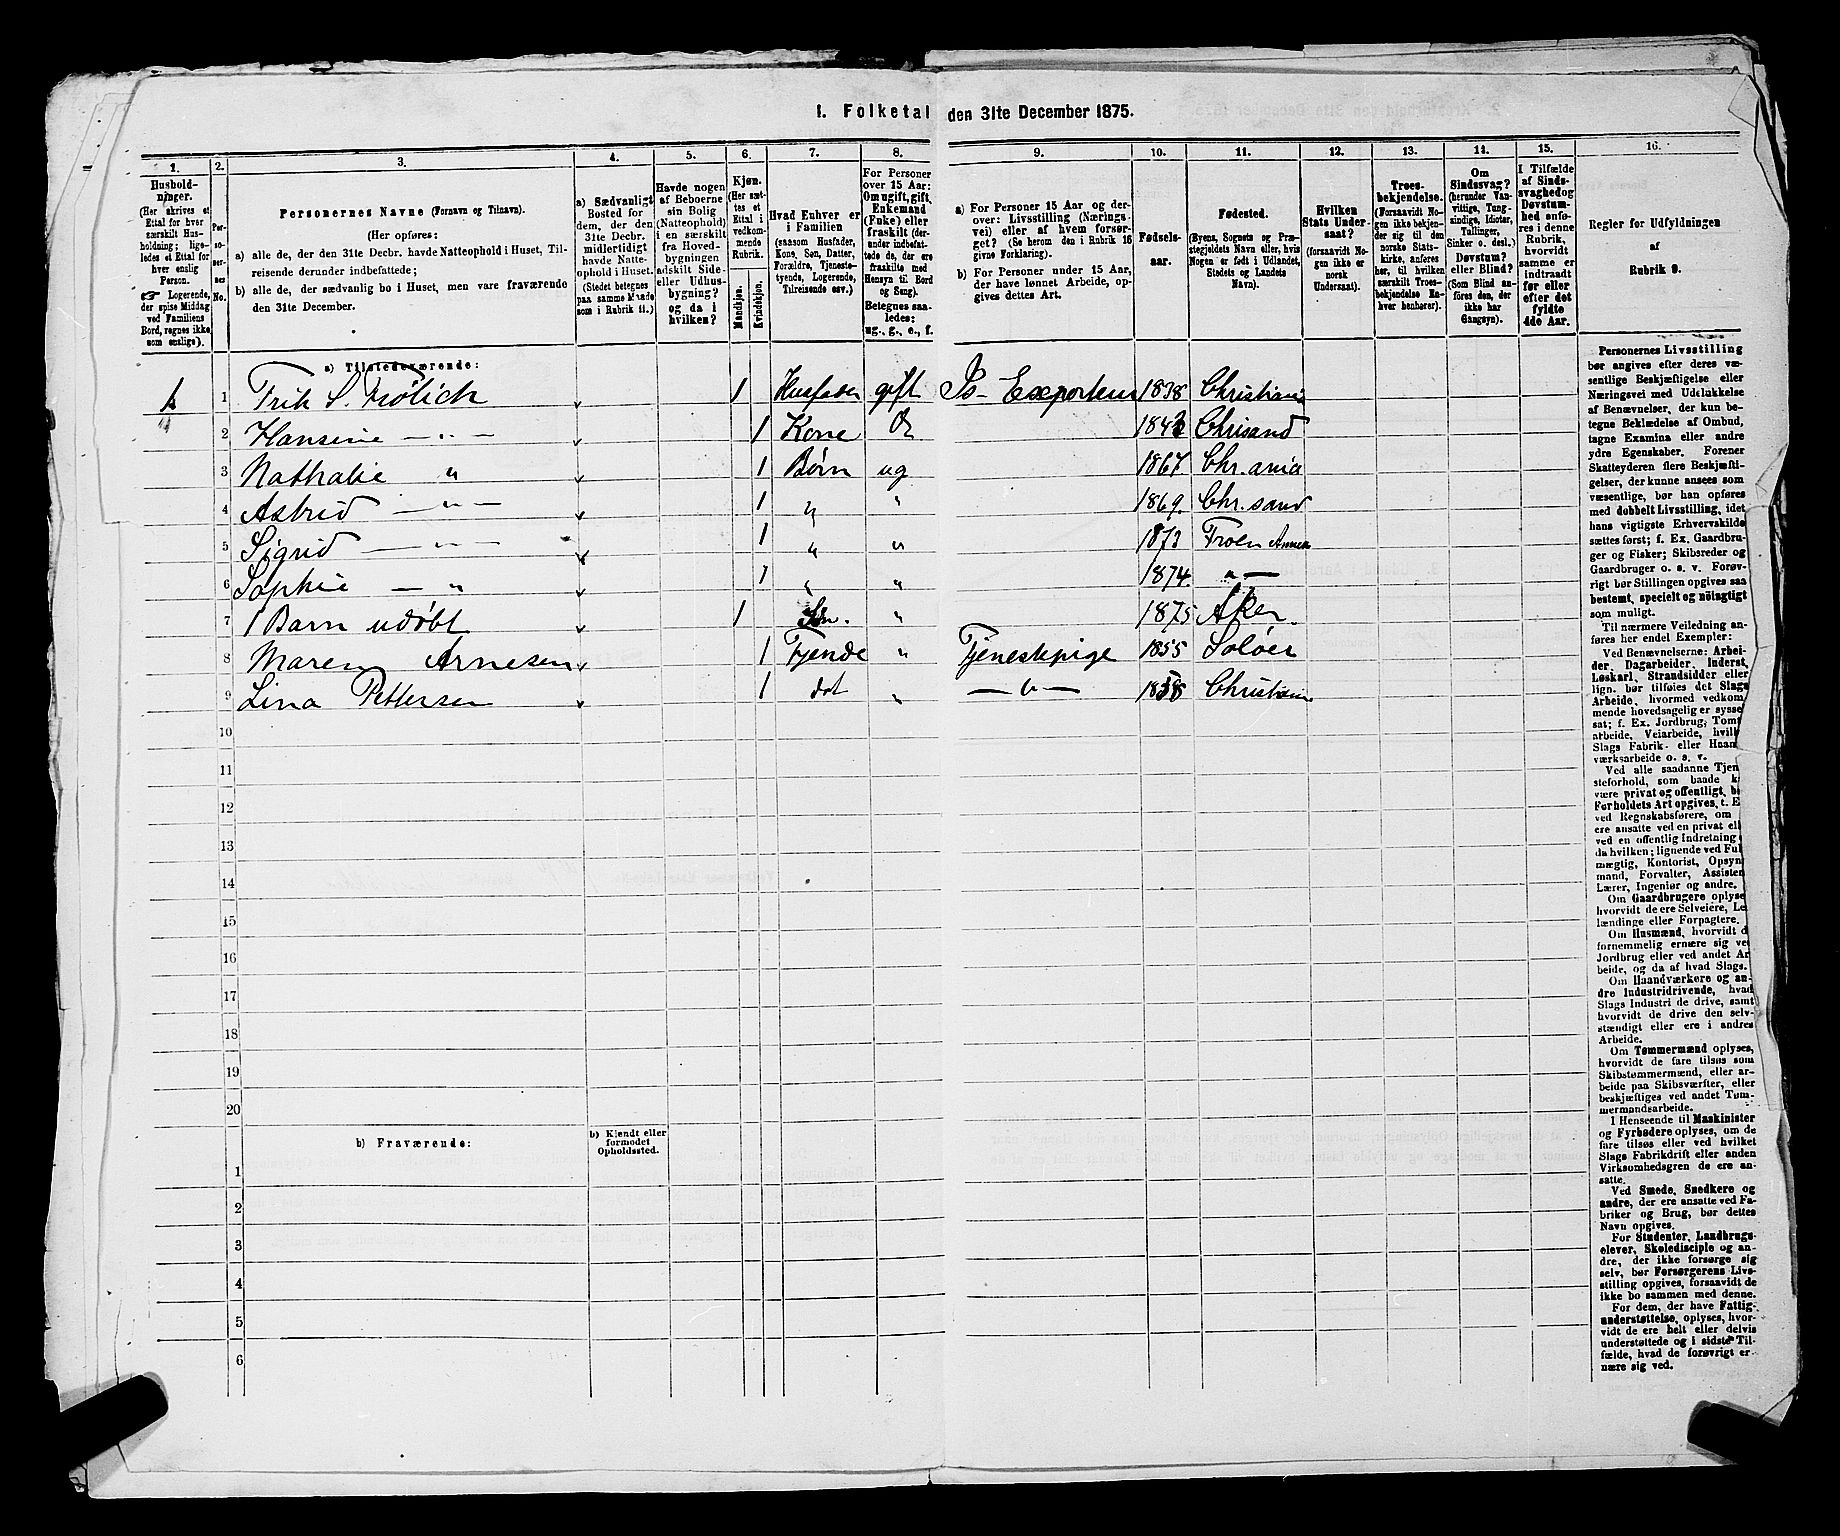 I. Folketal den 31te December 1875.
1. 2. 3. 4. 5. 6. 7. 8. 9. 10. 11. 12. 13. 14. 15. 16.
Husholdninger.
(Her skrives et
Ettal for hver
særskilt Husholdning;
ligeledes et Ettal for
hver enslig
Person.
☞ Logerende,
der spise Middag
ved Familiens
Bord, regnes ikke
som enslige).
Personernes No.
Personernes Navne (Fornavn og Tilnavn).
(Her opføres:
a) alle de, der den 31te Decbr. havde Natteophold i Huset, Tilreisende derunder indbefattede;
b) alle de, der sædvanlig bo i Huset, men vare fraværende
den 31te December.
a) Sædvanligt
Bosted for
dem, der den
31te Decbr.
midlertidigt
havde Natteophold i Huset.
(Stedet betegnes
paa samme Maade
som i Rubrik 11.)
Havde nogen
af Beboerne
sin Bolig
(Natteophold)
i en særskilt
fra Hovedbygningen
adskilt Side-
eller Udhusbygning?
og da i
hvilken?
Kjøn.
(Her sættes et
Ettal i
vedkommende
Rubrik.
Mandkjøn.
Kvindekjøn.
Hvad Enhver er
i Familien
(saasom Husfader,
Kone, Søn, Datter,
Forældre, Tjenestetyende, Logerende,
Tilreisende osv.)
For Personer
over 15 Aar:
Om ugift, gift,
Enkemand
(Enke) eller
fraskilt (derunder indbefattede de, der ere
fraskilte med
Hensyn til Bord
og Seng).
Betegnes saaledes:
ug., g., e., f.
a) For Personer 15 Aar og derover: Livsstilling (Næringsvei) eller af hvem forsørget? (Se herom den i Rubrik 16
givne Forklaring).
b) For Personer under 15 Aar,
der have lønnet Arbeide, opgives dettes Art.
Fødselsaar.
Fødested.
(Byens, Sognets og Præstegjeldets Navn eller, hvis
Nogen er født i Udlandet,
Stedets og Landets
Navn).
Hvilken
Stats Undersaat?
(forsaavidt Nogen ikke er
norsk
Undersaat).
Troesbekjendelse.
(Forsaavidt Nogen ikke bekjender sig til den
norske Statskirke, anføres
her, til hvilken
særskilt Troesbekjendelse Enhver henhører).
Om
Sindssvag?
(herunder Vanvittige, Tungsindige, Idioter,
Tullinger,
Sinker o. desl.)
Døvstum?
eller Blind?
(Som Blind anføres den, der
ikke har
Gangsyn).
I Tilfælde
af Sindssvaghed og
Døvstumhed anføres i denne
Rubrik,
hvorvidt
samme er
indtraadt
før eller
efter det
fyldte
4de Aar.
Regler for Udfyldningen
af
Rubrik 9.
a) Tilstedeværende:
1 Frik S. Frölich 1 Husfader gift Is- Exporteur 1838 Christiania
2 Hansine — „ — 1 Kone 1842 Chrisand
3 Nathalie „ 1 Børn ug 1867 Chr.ania
4 Astrid — „ — 1 „ „ 1869. Chr.sand
5 Sigrid — „ — 1 „ „ 1873 Froen
6 Sophie — „ 1 „ „ 1874. „ —
7 1 Barn udöbt 1 Søn. „ 1875 Aker.
8 Maren Arnesen 1 Tjende „ Tjenestepige 1855 Solöer
9 Lina Pettersen 1 dot „ — „ — 1858 Christiania
10
11
12
13
14
15
16
17
18
19
20
b) Fraværende:
b) Kjendt eller
formodet
Opholdssted.
1
2
3
4
5
6
Personernes Livsstilling
bør angives efter deres væsentlige Beskjæftigelse eller
Næringsvei med Udelukkelse
af Benævnelser, der kun betegne Beklædelse af Ombud,
tagne Examina eller andre
ydre Egenskaber. Forener
Skatteyderen flere Beskjæftigelser, der kunne ansees som
væsentlige, bør han opføres
med dobbelt Livsstilling, idet
hans vigtigste Erhvervskilde
sættes først; f. Ex. Gaardbruger og Fisker; Skibsreder og
Gaardbruger o. s. v. Forøvrigt bør Stillingen opgives saa
bestemt, specielt og nöiagtigt
som muligt.
Til nærmere Veiledning anføres her endel Exempler:
Ved Benævnelserne: Arbeider, Dagarbeider, Inderst,
Løskarl, Strandsidder eller
lign. bør tilføies det Slags
Arbeide, hvormed vedkommende hovedsagelig er sysselsat; f. Ex. Jordbrug, Tomtarbeide, Veiarbeide, hvilk
Slags Fabrik- eller Haandværksarbeide o. s. v.
Ved alle saadanne Tjensteforhold, som baade k
være privat og offentligt, b
Forholdets Art opgives, t. E
ved Regnskabsførere, om
ere ansatte ved en privat ell
ved en offentlig Indretning
da hvilken; lignende ved Fulmægtig, Kontorist, Opsynmand, Forvalter, Assisten
Lærer, Ingeniør og andre.
Om Gaardbrugere oplyse
hvorvidt de ere Selveiere, Lelændinge eller Forpagtere.
Om Husmænd, hvorvidt d
fornemmelig ernære sig ve
Jordbrug eller ved andet Arbeide, og da af hvad Slags.
Om Haandværkere og andre Industridrivende, hvad
Slags Industri de drive, samt
hvorvidt de drive den selvstændigt eller ere i andres
Arbeide.
Om Tømmermænd oplyses,
hvorvidt de fare tilsøs som
Skibstømmermænd, eller arbeide paa Skibsværfter, eller
beskjæftiges ved andet Tømmermandsarbeide.
I Henseende til Maskinister
og Fyrbødere oplyses, om de
fare tilsøs eller ved hvilket
Slags Fabrikdrift eller anden
Virksomhedsgren de ere ansatte.
Ved Smede, Snedkere og
andre, der ere ansatte ved Fabriker og Brug, bør dettes
Navn opgives.
For Studenter, Landbrugselever, Skoledisciple og andre, der ikke forsørge sig
selv, bør Forsørgerens Livsstilling opgives, forsaavidt de
ikke bo sammen med denne.
For dem, der have Fattigunderstøttelse, oplyses, hvorvidt de ere helt eller delvis
understøttede og i sidste Tilfælde, hvad de forøvrigt ernære sig ved.